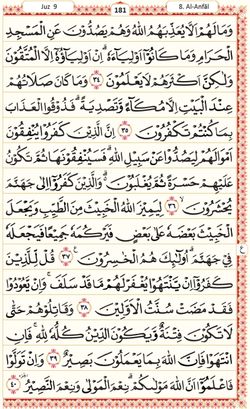 Juz 9 181 8. Al-Anfāl
وَمَا لَهُمْ اَلَّا يُعَذِّبَهُمُ اللّٰهُ وَهُمْ يَصُدُّوْنَ عَنِ الْمَسْجِدِ
الْحَرَامِ وَمَا كَانُوْٓا اَوْلِيَاۤءَهٗۗ اِنْ اَوْلِيَاۤؤُهٗٓ اِلَّا الْمُتَّقُوْنَ
وَلٰكِنَّ اَكْثَرَهُمْ لَا يَعْلَمُوْنَ ٣٤ وَمَا كَانَ صَلَاتُهُمْ
عِنْدَ الْبَيْتِ اِلَّا مُكَاۤءً وَّتَصْدِيَةًۗ فَذُوْقُوا الْعَذَابَ
بِمَا كُنْتُمْ تَكْفُرُوْنَ ٣٥ اِنَّ الَّذِيْنَ كَفَرُوْا يُنْفِقُوْنَ
اَمْوَالَهُمْ لِيَصُدُّوْا عَنْ سَبِيْلِ اللّٰهِۗ فَسَيُنْفِقُوْنَهَا ثُمَّ تَكُوْنُ
عَلَيْهِمْ حَسْرَةً ثُمَّ يُغْلَبُوْنَۗ وَالَّذِيْنَ كَفَرُوْٓا اِلٰى جَهَنَّمَ
يُحْشَرُوْنَ ٣٦ لِيَمِيْزَ اللّٰهُ الْخَبِيْثَ مِنَ الطَّيِّبِ وَيَجْعَلَ
الْخَبِيْثَ بَعْضَهٗ عَلٰى بَعْضٍ فَيَرْكُمَهٗ جَمِيْعًا فَيَجْعَلَهٗ
فِيْ جَهَنَّمَۗ اُولٰۤىِٕكَ هُمُ الْخٰسِرُوْنَ ٣٧ قُلْ لِّلَّذِيْنَ
كَفَرُوْٓا اِنْ يَّنْتَهُوْا يُغْفَرْ لَهُمْ مَّا قَدْ سَلَفَۚ وَاِنْ يَّعُوْدُوْا
فَقَدْ مَضَتْ سُنَّتُ الْاَوَّلِيْنَ ٣٨ وَقَاتِلُوْهُمْ حَتّٰى
لَا تَكُوْنَ فِتْنَةٌ وَّيَكُوْنَ الدِّيْنُ كُلُّهٗ لِلّٰهِۚ فَاِنِ
انْتَهَوْا فَاِنَّ اللّٰهَ بِمَا يَعْمَلُوْنَ بَصِيْرٌ ٣٩ وَاِنْ تَوَلَّوْا
فَاعْلَمُوْٓا اَنَّ اللّٰهَ مَوْلٰىكُمْۗ نِعْمَ الْمَوْلٰى وَنِعْمَ النَّصِيْرُ ٤٠